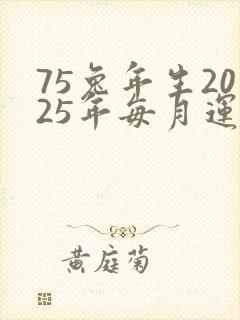 75兔年生20
25年每月運
黄庭菊